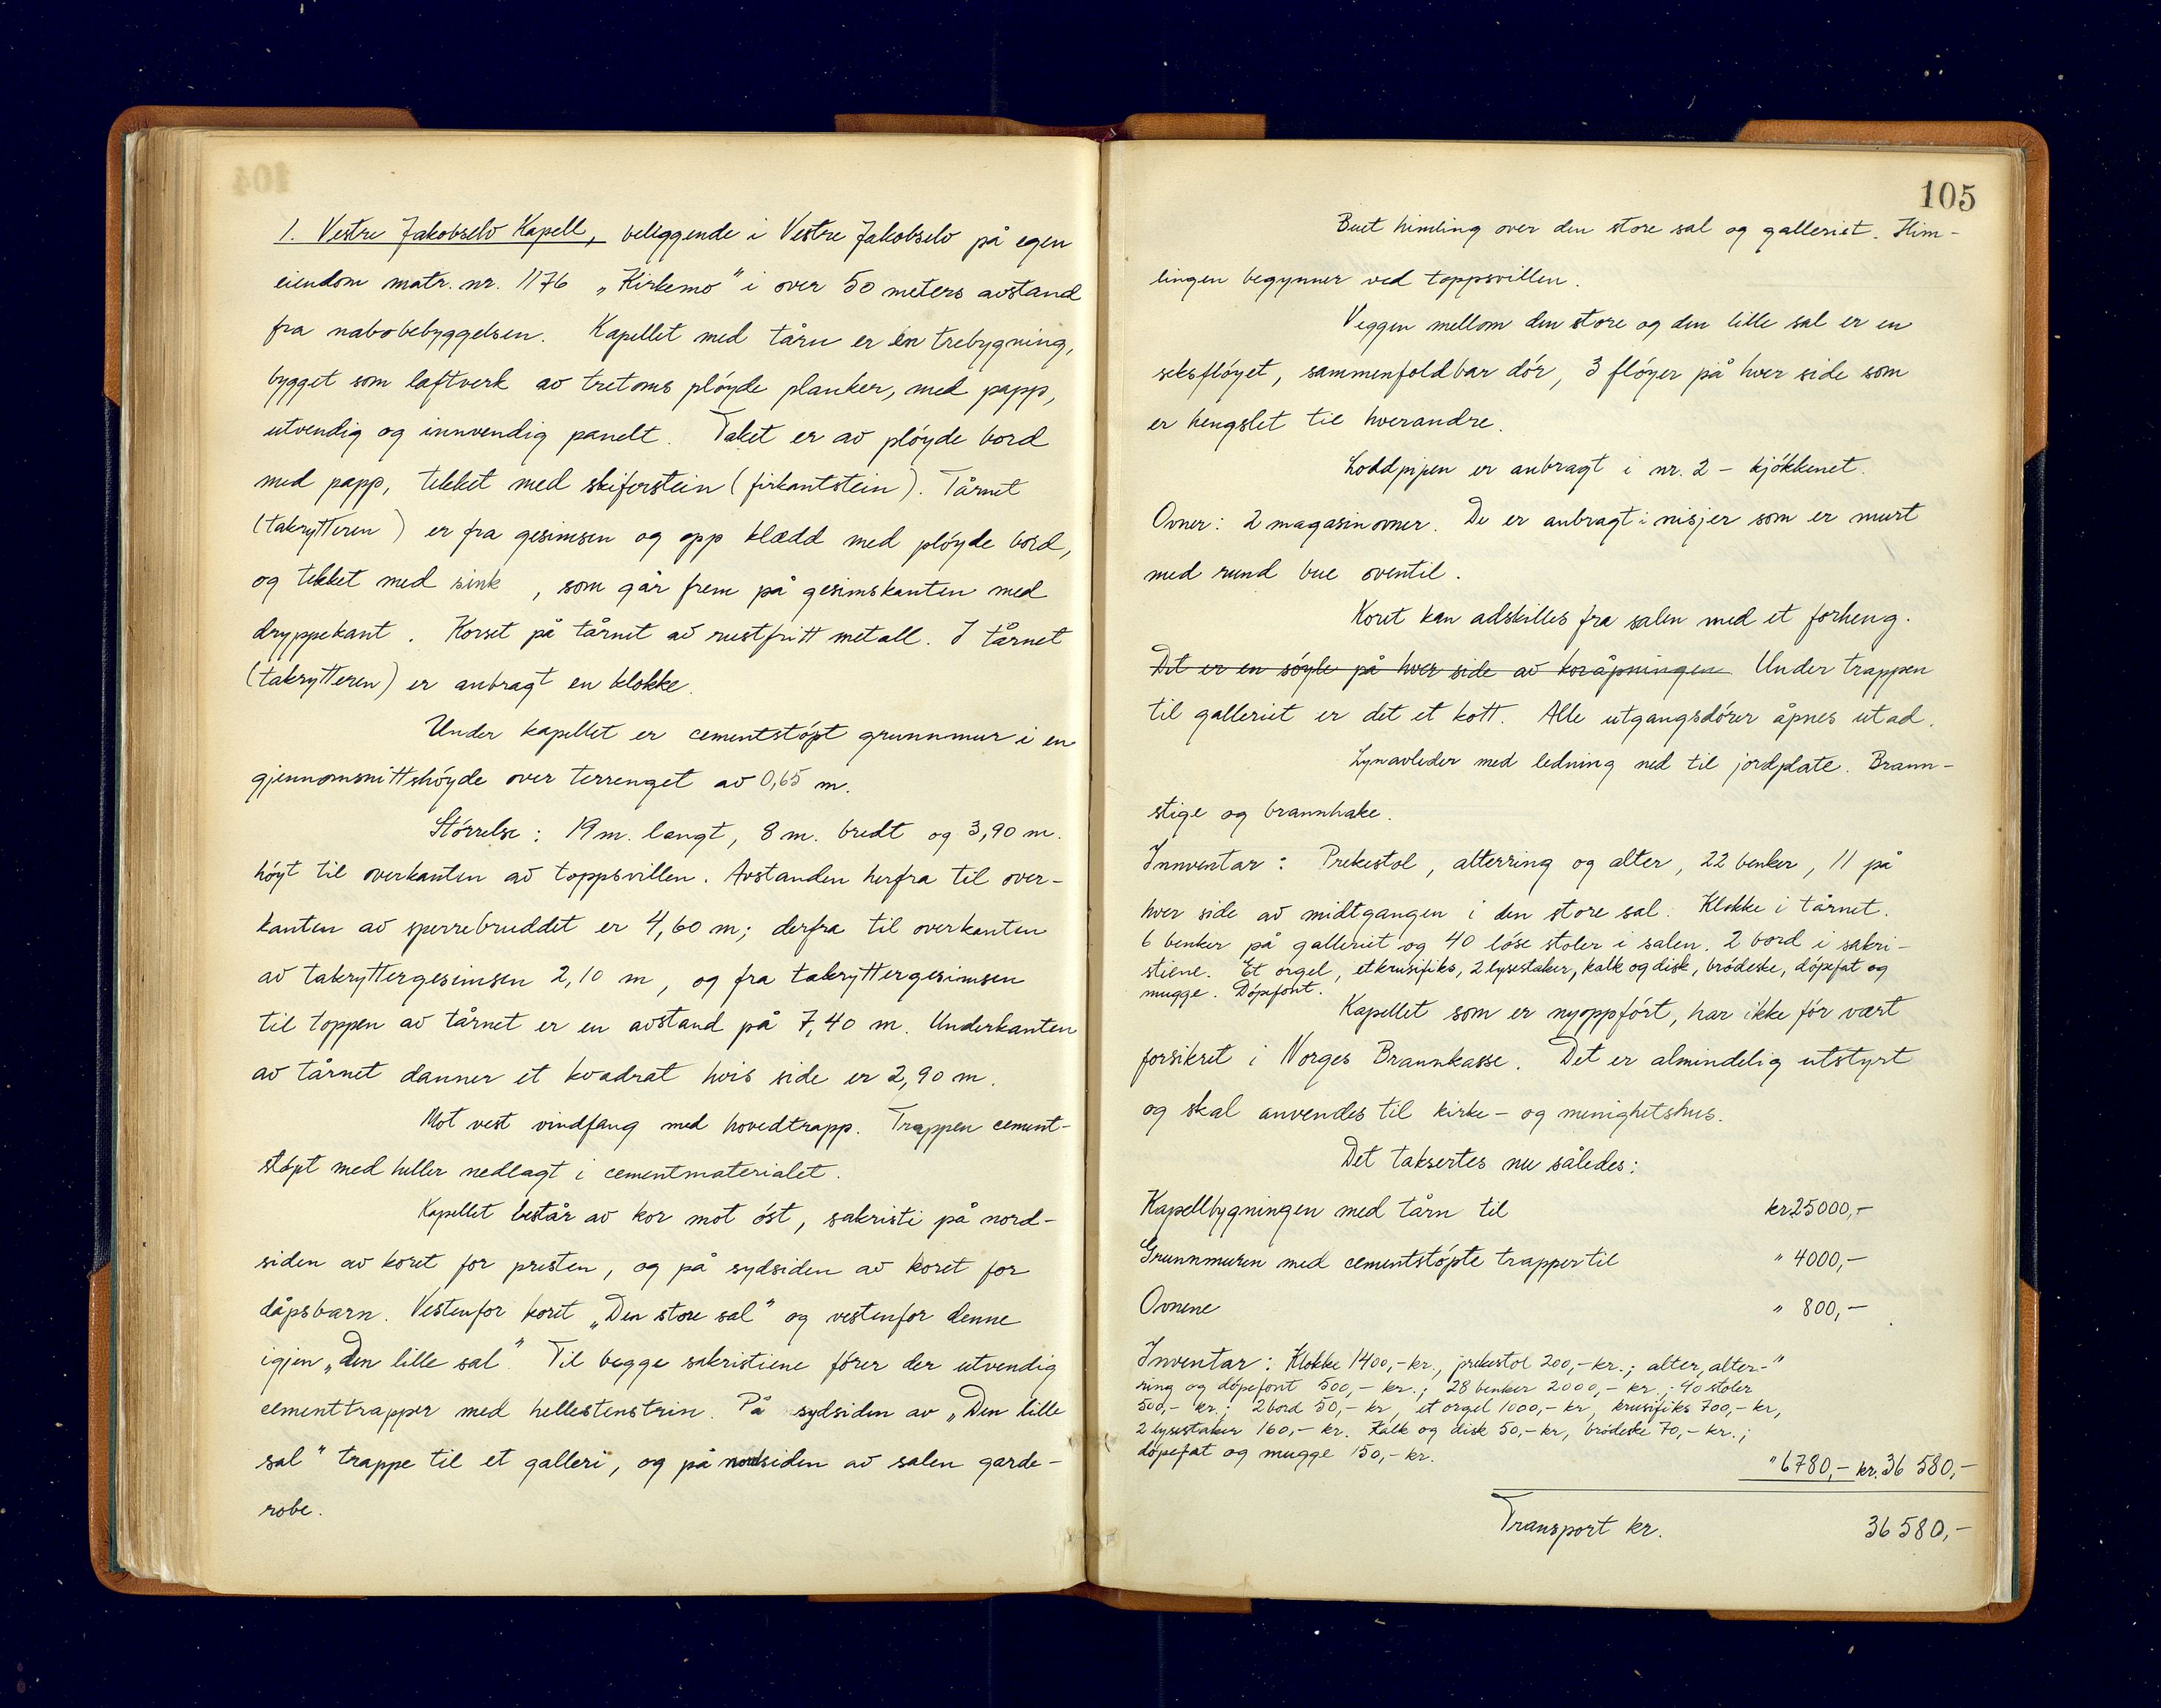 104
1. Vestre Jakobselv Kapell, beliggende i Vestre Jakobselv på egen
eiendom matr. nr. 1176 „Kirkemo" i over 50 meters avstand
fra nabobebyggelsen. Kapellet med tårn er en trebygning,
bygget som laftverk av tretoms pløyde planker, med papp,
utvendig og innvendig panelt. Taket er av pløyde bord
med papp, tekket med skiferstein (firkantstein). Tårnet
(takrytteren) er fra gesimsen og opp klædd med pløyde bord,
og tekket med sink , som går frem på gesimskanten med
dryppekant. Korset på tårnet av rustfritt metall. I tårnet
(takrytteren) er anbragt en klokke.
Under kapellet er cementstøpt grunnmur i en
gjennomsnittshøyde over terrenget av 0,65 m.
Størrelse: 19 m. langt, 8 m. bredt og 3,90 m.
høyt til overkanten av toppsvillen. Avstanden herfra til over-
kanten av sperrebruddet er 4,60 m; derfra til overkanten
av takryttergesimsen 2,10 m, og fra takryttergesimsen
til toppen av tårnet er en avstand på 7,40 m. Underkanten
av tårnet danner et kvadrat hvis side er 2,90 m.
Mot vest vindfang med hovedtrapp. Trappen cement-
støpt med heller nedlagt i cementmaterialet.
Kapellet består av kor mot øst, sakristi på nord-
siden av koret for presten, og på sydsiden av koret for
dåpsbarn. Vestenfor koret „Den store sal" og vestenfor denne
igjen „Den lille sal". Til begge sakristiene fører der utvendig
cementtrapper med hellestenstrin. På sydsiden av „Den lille
sal" trappe til et galleri, og på nordsiden av salen garde-
robe.
105
Buet himling over den store sal og galleriet. Him-
lingen begynner ved toppsvillen.
Veggen mellom den store og den lille sal er en
seksfløyet, sammenfoldbar dør, 3 fløyer på hver side som
er hengslet til hverandre.
Loddpipen er anbragt i nr. 2 - kjøkkenet.
Ovner: 2 magasinovner. De er anbragt i nisjer som er murt
med rund bue oventil.
Koret kan adskilles fra salen med et forheng.
Det er en søyle på hver side av koråpningen Under trappen
til galleriet er det et kott. Alle utgangsdører åpnes utad.
Lynavleder med ledning ned til jordplate. Brann-
stige og brannhake.
Innventar: Prekestol, alterring og alter, 22 benker, 11 på
hver side av midtgangen i den store sal. Klokke i tårnet.
6 benker på galleriet og 40 løse stoler i salen. 2 bord i sakri-
stiene. Et orgel, et krusifiks, 2 lysestaker, kalk og disk, brødeske, døpefat og
mugge. Døpefont.
Kapellet som er nyoppført, har ikke før vært
forsikret i Norges Brannkasse. Det er almindelig utstyrt
og skal anvendes til kirke- og menighetshus.
Det taksertes nu således:
Kapellbygningen med tårn til kr 25000,-
Grunnmuren med cementstøpte trapper til " 4000,-
Ovnene " 800,-
Inventar: Klokke 1400,- kr., prekestol 200,- kr.; alter, alter- "
ring og døpefont 500,- kr.; 28 benker 2000,- kr.; 40 stoler
500,- kr.; 2 bord 50,- kr, et orgel 1000,- kr, krusifiks 700,- kr,
2 lysestaker 160,- kr. Kalk og disk 50,- kr, brødeske 70,- kr.;
døpefat og mugge 150,- kr.
" 6780,- kr. 36 580,-
Transport kr. 36 580,-